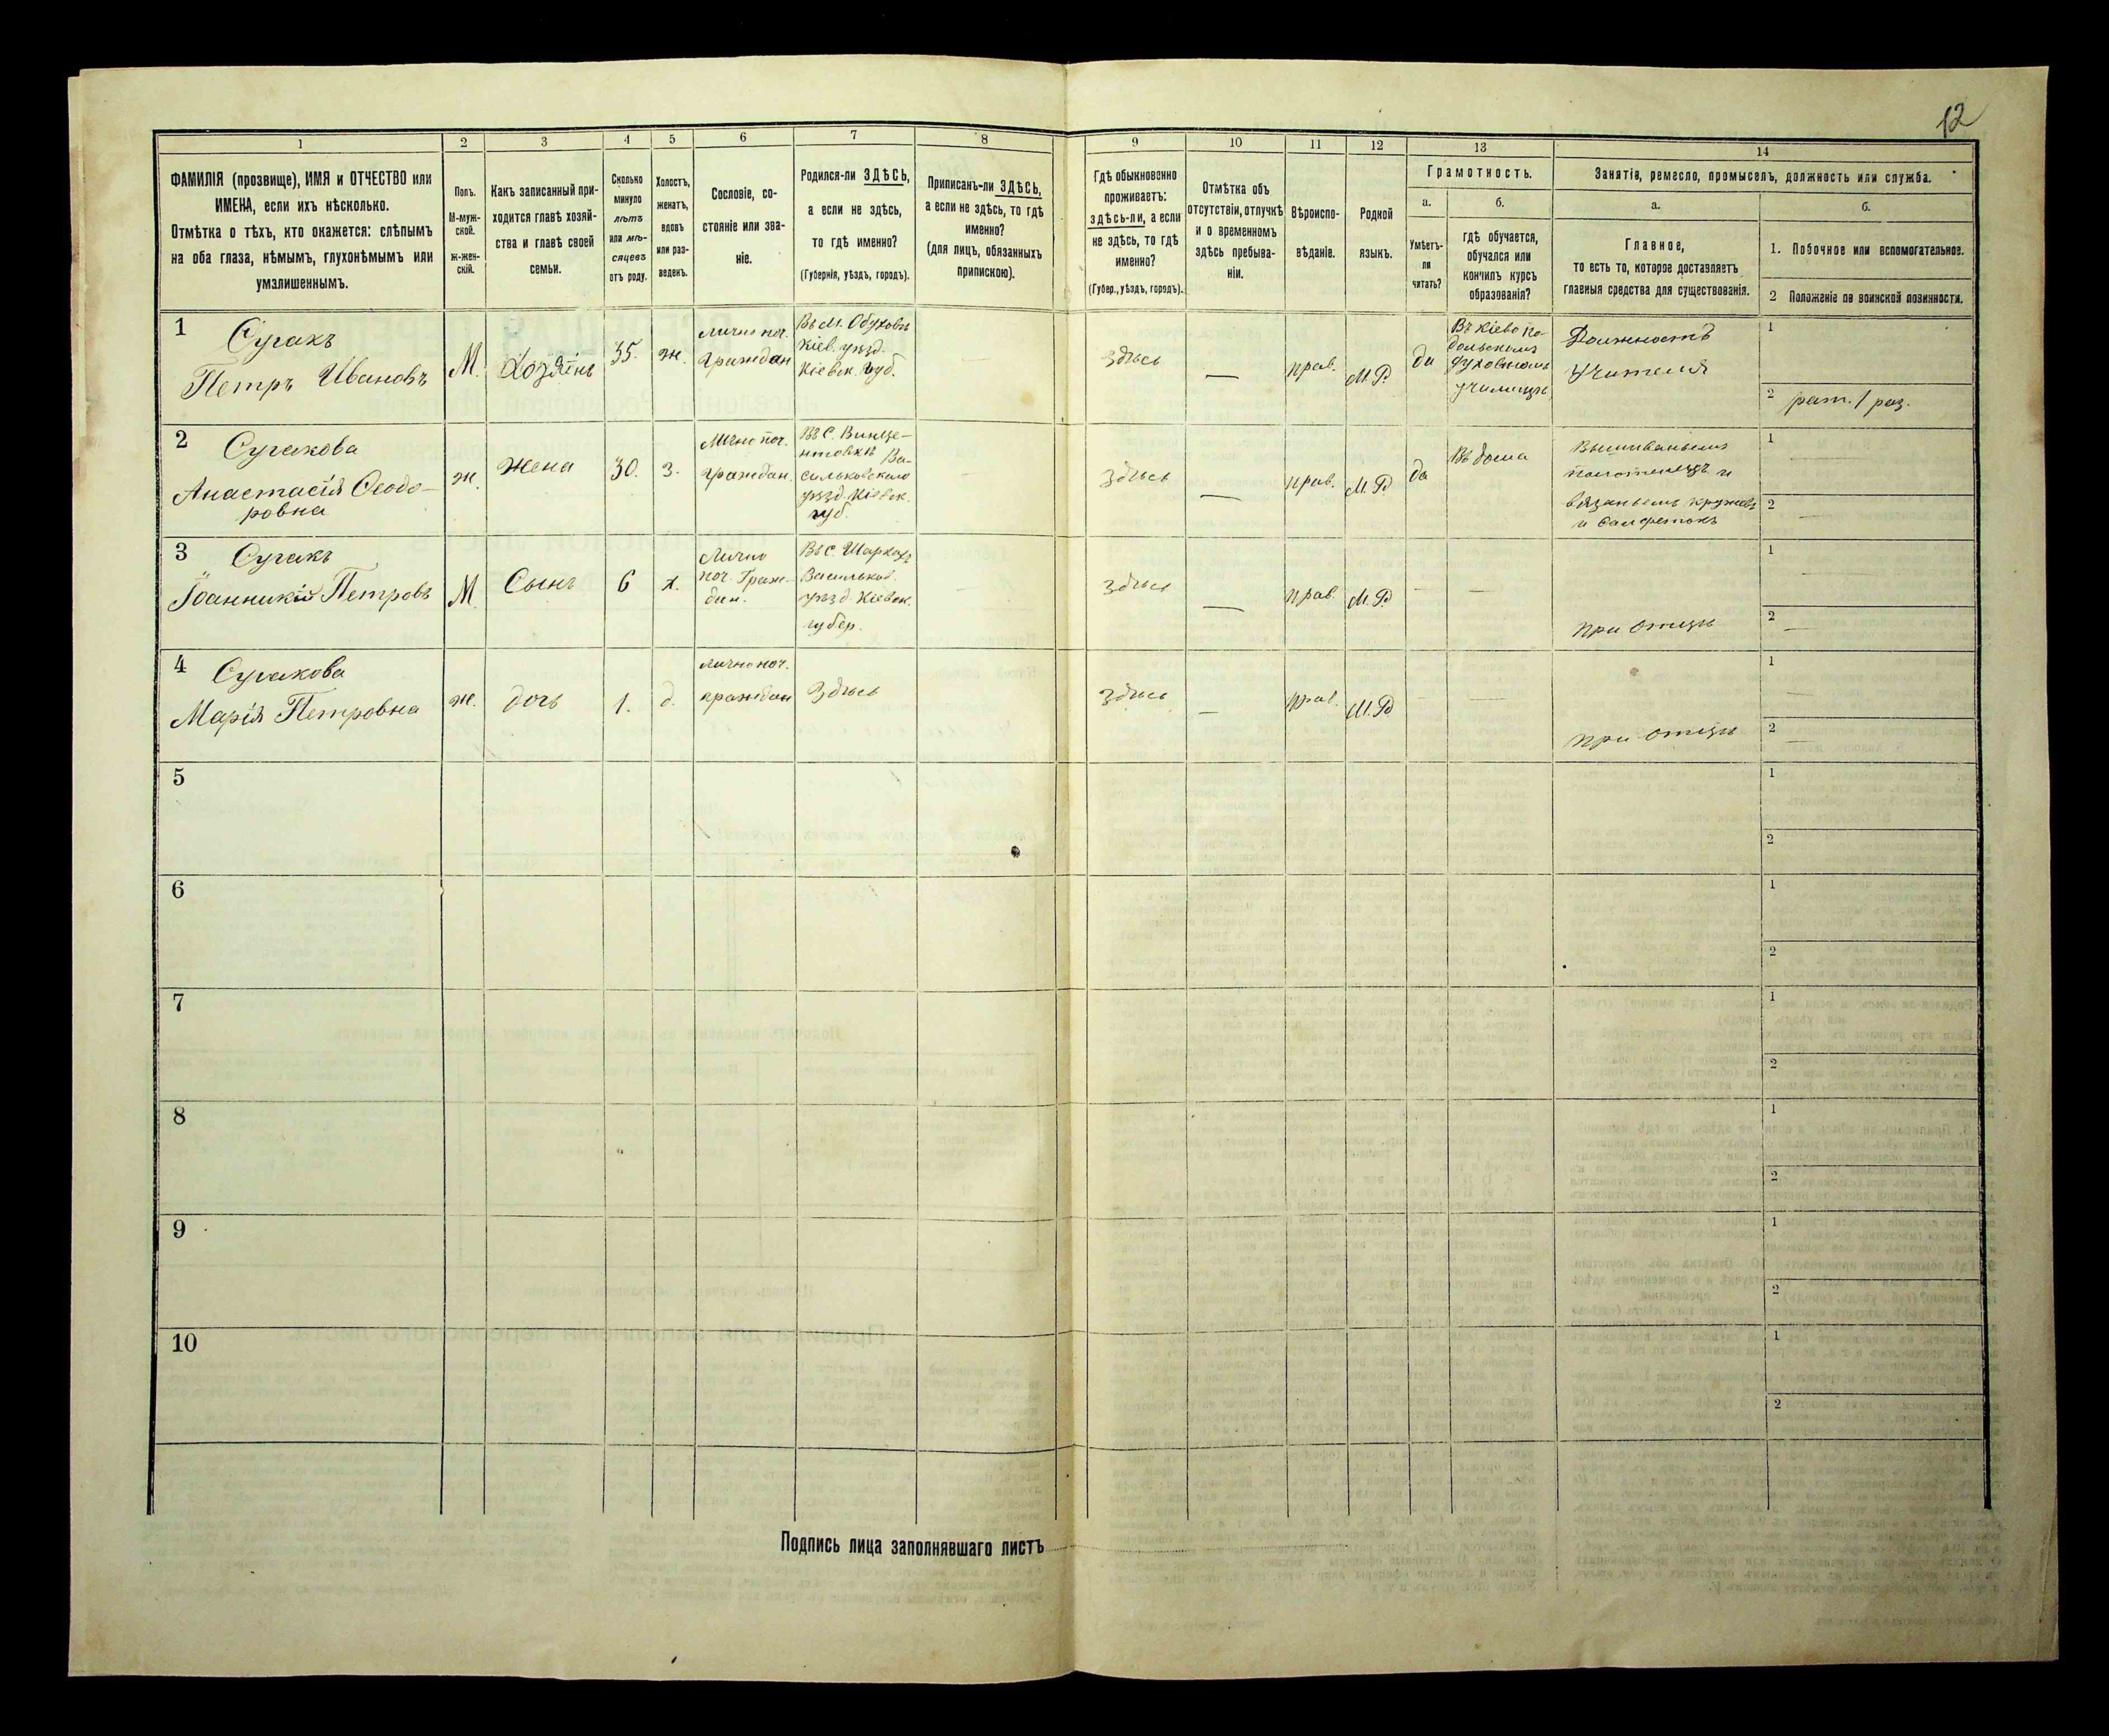 12
1 2 3 4 5 6 7 8 9 10 11 12 13 14
ФАМИЛІЯ (прозвище), ИМЯ и ОТЧЕСТВО или
ИМЕНА, если ихъ нѣсколько.
Отмѣтка о тѣхъ, кто окажется: слѣпымъ
на оба глаза, нѣмымъ, глухонѣмымъ или
умалишеннымъ.
Полъ.
М-муж-
ской.
ж-жен-
скій.
Какъ записанный при-
ходится главѣ хозяй-
ства и главѣ своей
семьи.
Сколько
минуло
лѣтъ
или мѣ-
сяцевъ
отъ роду.
Холостъ,
женатъ,
вдовъ
или раз-
веденъ.
Сословіе, со-
стояніе или зва-
ніе.
Родился-ли ЗДѢСЬ,
а если не здѣсь,
то гдѣ именно?
(Губернія, уѣздъ, городъ).
Приписанъ-ли ЗДѢСЬ,
а если не здѣсь, то гдѣ
именно?
(для лицъ, обязанныхъ
припискою).
Гдѣ обыкновенно
проживаетъ:
здѣсь-ли, а если
не здѣсь, то гдѣ
именно?
(Губер., уѣздъ, городъ).
Отмѣтка объ
отсутствіи, отлучкѣ
и о временномъ
здѣсь пребыва-
ніи.
Вѣроиспо-
вѣданіе.
Родной
языкъ.
Грамотность.
а.
Умѣетъ-
ли
читать?
б.
гдѣ обучается,
обучался или
кончилъ курсъ
образованія?
Занятіе, ремесло, промыселъ, должность или служба.
а.
Главное,
то есть то, которое доставляетъ
главныя средства для существованія.
б.
1. Побочное или вспомогательное.
2 Положеніе по воинской повинности.
1
Сугакъ
Петръ Ивановъ
М.
Хозяинъ
35.
ж.
лично поч.
Граждан
Въ М. Обухов
Кіев. уѣзд.
Кіевск. Губ.
здѣсь
прав.
М. Р.
да
Въ Кіево По-
дольскомъ
духовномъ
училищѣ
Должность
Учителя
1
2 рат. 1 раз.
2
Сугакова
Анастасія Ѳеодо-
ровна
ж.
Жена
30.
з.
Лично поч.
граждан.
Въ С. Винце-
нтовкѣ Ва-
сильковского
уѣзд. Кіевск.
губ.
здѣсь
прав.
М. Р.
да
Въ дома
Вышиваньемъ
полотенецъ и
вязаньемъ кружевъ
и салфетокъ
1
2
3
Сугакъ
Іоанникій Петровъ
М
Сынъ
6
х.
Лично
поч. Граж-
дан.
Въ С.
Васильков.
уѣзд. Кіевск.
губер.
здѣсь
прав.
М. Р.
при отцѣ
1
2
4
Сугакова
Марія Петровна
ж.
дочь
1.
д.
лично поч.
граждан
Здѣсь
здѣсь
прав.
М. Р.
при отцѣ
1
2
5
1
2
6
1
2
7
1
2
8
1
2
9
1
2
10
1
2
Подпись лица заполнявшаго листъ